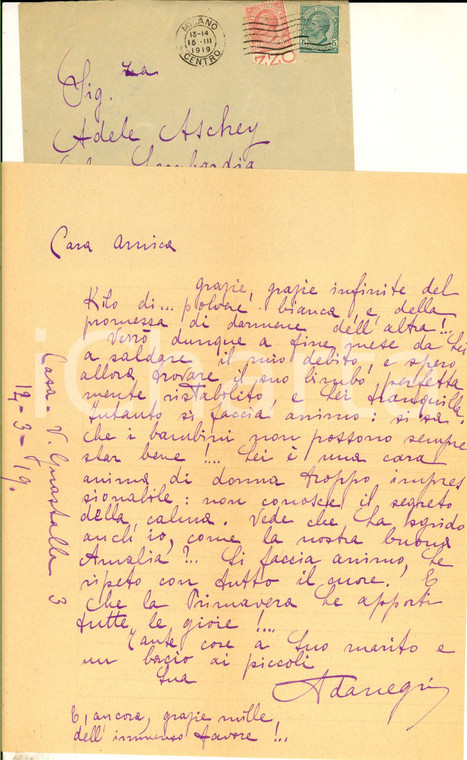 MILANO
13-14
16 III
1919
CENTRO
Sig.ra
Adele Aschey
Lombardia
Cara Amica
grazie, grazie infinite del
Kilo di... polvere bianca, e della
promessa di darmene dell'altra!...
Verrò dunque a fine mese da Lei
a saldare il mio debito, e spero
allora trovare il suo bimbo perfetta
mente ristabilito, e Lei tranquilla.
Intanto si faccia animo: si sa
che i bambini non possono sempre
star bene!... Lei è una cara
anima di donna troppo impres
sionabile: non conosce il segreto
della calma. Vede che La sgrido
anch'io, come la nostra buona
Amalia?.. Si faccia animo, Le
ripeto con tutto il cuore. E
che la Primavera Le apporti
tutte le gioie!...
Tante cose a Suo marito e
un bacio ai piccoli
Sua
Ada Negri
E, ancora, grazie mille,
dell'immenso favore!...
Casa - V. Guastalla 3
14-3-19.
iCharta